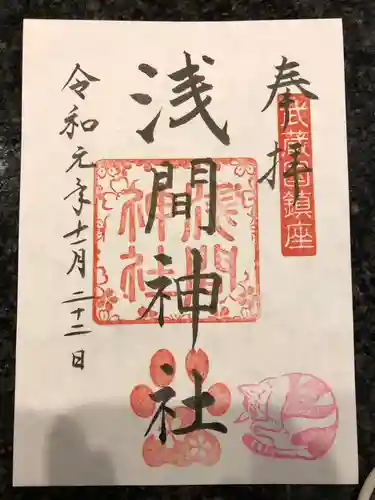 奉拝
武蔵国鎮座
浅間神社
浅間神社
令和元年十一月二十二日